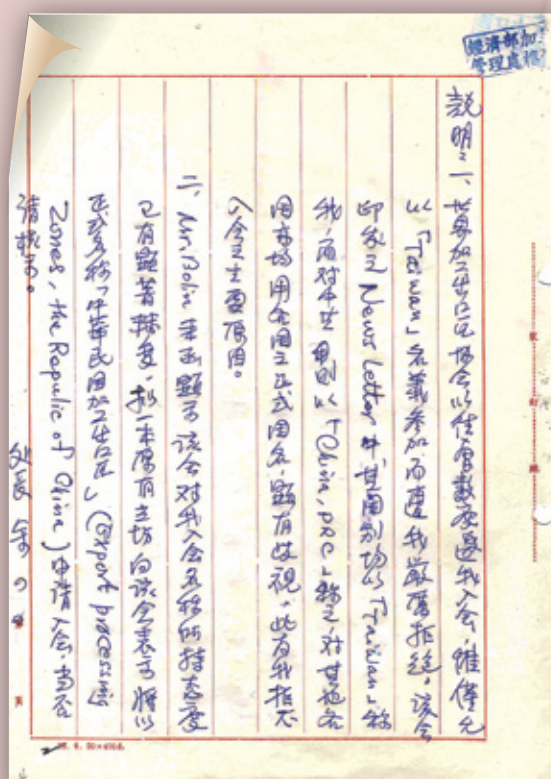 經濟部加
管理處
說明：一、世界加工出口區協會以往曾數度邀我入會，惟僅允
以「Taiwan」名義參加而遭我嚴厲拒絕，該會
印發之 News Letter 中其國別均以「Taiwan」稱
我，而對中共則以「China, PRC」稱之，對其他各
國亦均用全國之正式國名，顯有歧視，此為我指不
入會之主要原因。
二、Mr. Bolin 來函顯示該會對我入會名稱所持態度
已有顯著轉變，擬一本原有立場向該會表示將以
正式名稱「中華民國加工出口區」（Export processing
Zones, the Republic of China）申請入會，當否
請核示。
處長 余
裝
訂
線